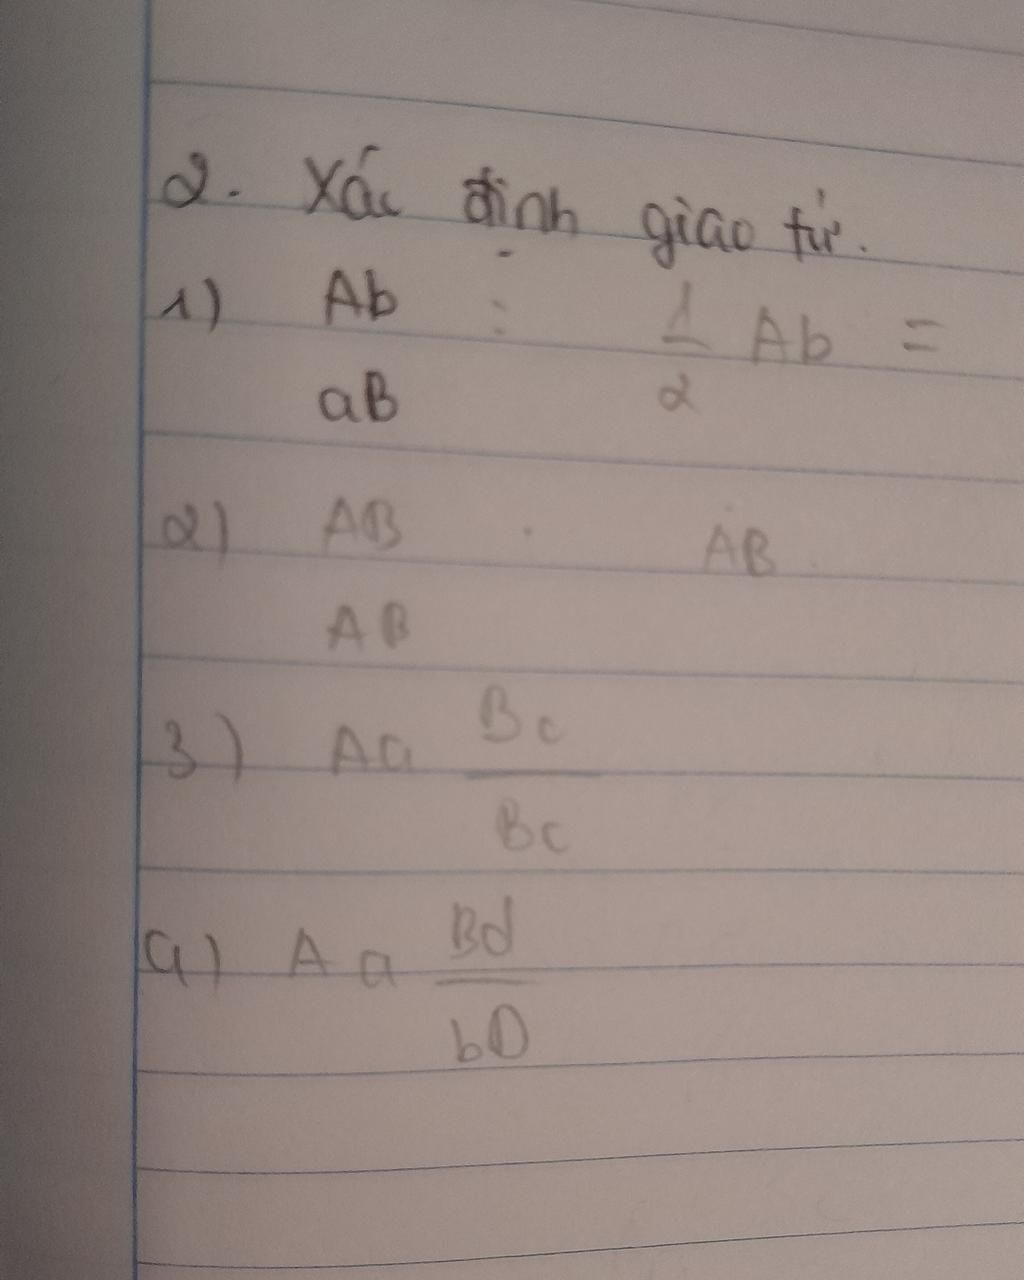 2. Xác định giao tử.
1) Ab : 1 Ab =
aB 2
2) AB . AB
AB
3) Aa Bc
Bc
4) Aa Bd
bD